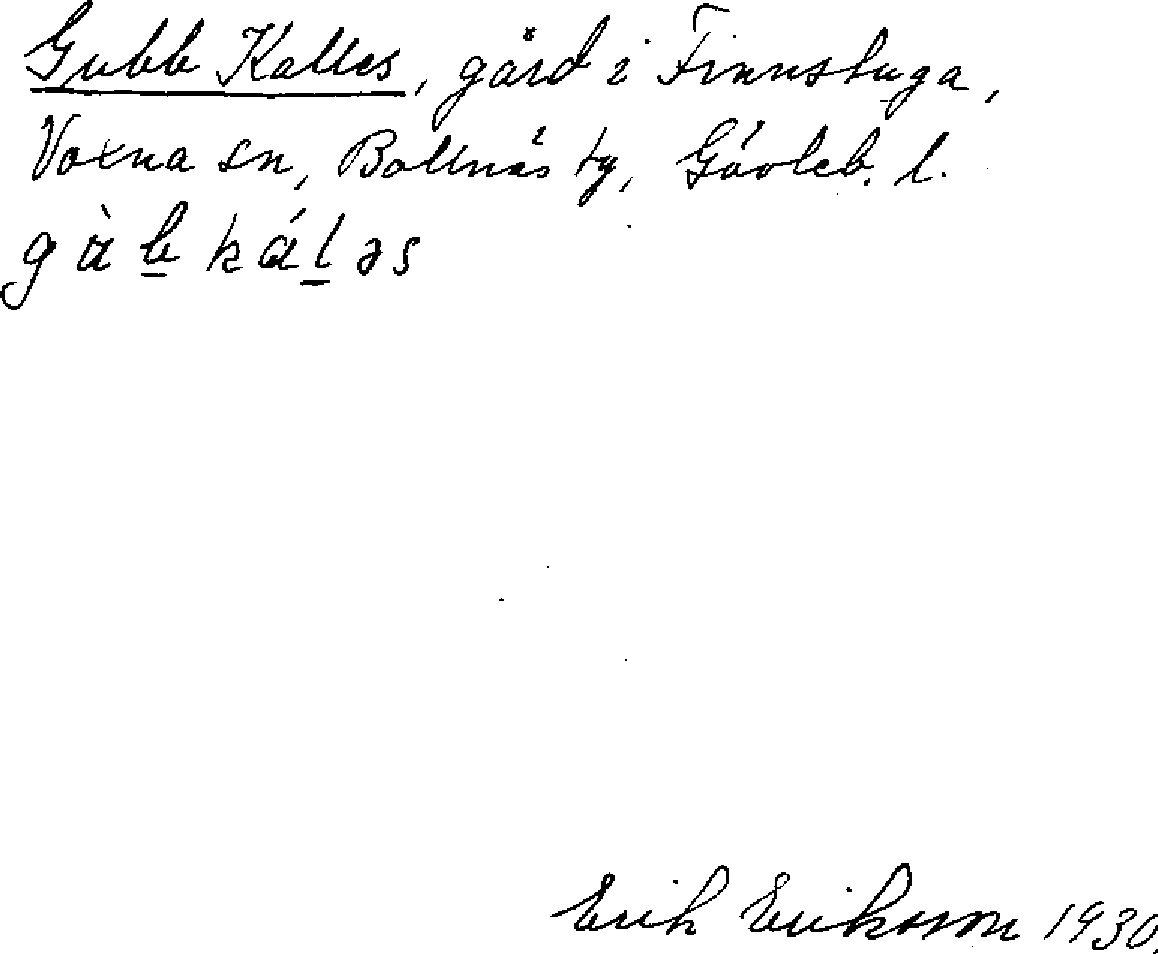 Gubb Kalles, gård i Finnstuga,
Voxna sn, Bollnäs tg, Gävleb. l.
gàb̲ kál̲əs
Erik Eriksson 1930.